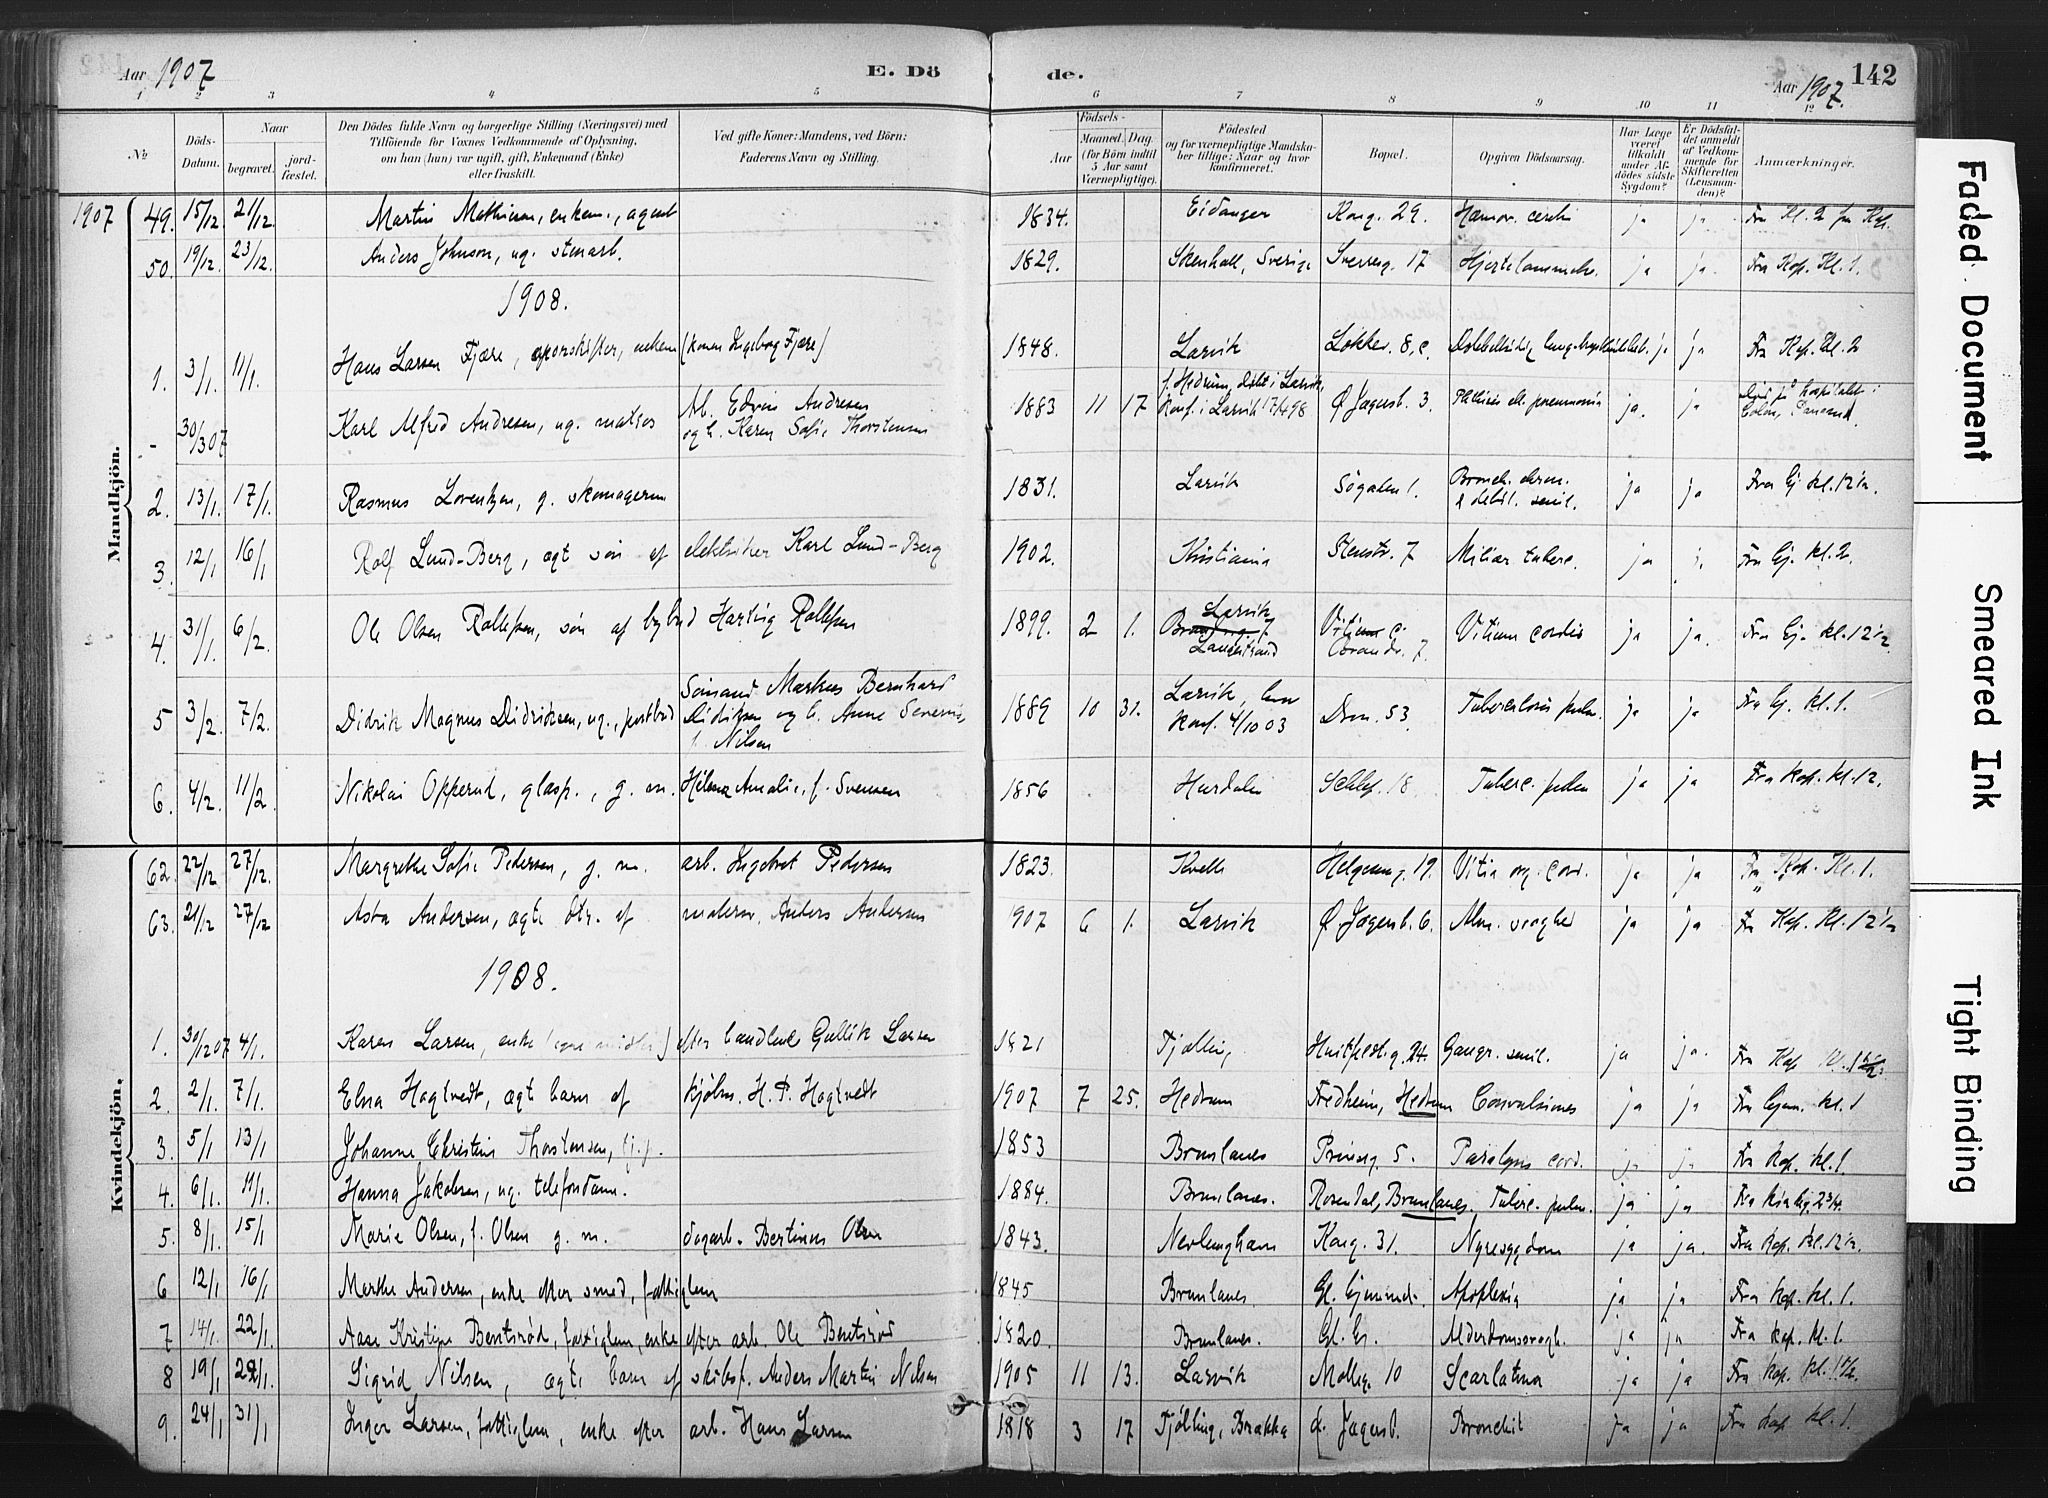 Aar 1907 E. Dö de. Aar 1907. 142
1 2 3 4 5 6 7 8 9 10 11 12
No
Döds-Datum.
Naar
begravet.
jord-fæstet.
Den Dödes fulde Navn og borgerlige Stilling (Næringsvei) med
Tilföiende for Voxnes Vedkommende af Oplysning,
om han (hun) var ugift, gift, Enkemand (Enke)
eller fraskilt.
Ved gifte Koner: Mandens, ved Börn:
Faderens Navn og Stilling.
Födsels-
Aar
Maaned. Dag.
(for Börn indtil
5 Aar samt
Værnepligtige).
Födested
og for værnepligtige Mandska-
ber tillige: Naar og hvor
konfirmeret.
Bopæl.
Opgiven Dödsaarsag.
Har Læge
været
tilkaldt
under Af-
dödes sidste
Sygdom?
Er Dödsfal-
det anmeldt
af Vedkom-
mende for
Skifteretten
(Lensman-
den)?
Anmærkninger.
Mandkjön.
1907 49. 15/12. 21/12. Martin Mathisen, enkem., agent 1834. Eidanger Kong. 29. Hæmor. cerebri ja ja Fra Kl. 2 fra Kap.
50. 19/12. 23/12. Anders Johnson, ug. stenarb. 1829. Skenhall, Sverige Sverreg. 17 Hjertelammelse. ja ja. Fra Kap. Kl. 1.
1908.
1. 3/1. 11/1. Hans Larsen Fjære, enkem (konen Ingeborg Fjære) 1848. Larvik Løkkev. 8, c. ja ja Fra Kap. Kl. 2
- 30/3 07 Karl Alfred Andresen, ug. matros Arb. Edvin Andresen
og h. Karen Sofie Thorstensen 1883 11 17 f. Hedrum, døbt i Larvik,
Konf. i Larvik 17/4 98 Ø. Jagersb. 3. Phthisis el. pneumonia ja. ja Død på hospitalet i
Colon, Panama.
2. 13/1. 17/1. Rasmus Lorentzen, g. skomagerm 1831. Larvik Søgaten 1. Bronch. chron.
& debil. senil. ja ja Fra Gj kl. 12 1/2.
3. 12/1 16/1 Rolf Lund-Berg, ægt søn af elektriker Karl Lund-Berg 1902. Kristiania Stenstr. 7 Miliær tuberc. ja Fra Gj. kl. 2.
4. 31/1. 6/2. Ole Olsen Rollefsen, søn af bybud Hartvig Rollefsen 1899. 2 1. Larvik
Langestrand 7. Vitium cordis ja ja. Fra Gj. kl. 12 1/2
5 3/2. 7/2. Didrik Magnus Didriksen, ug., postbud Sømand Markus Bernhard
Didriksen og h. Anne Severine
f. Nilsen 1889 10 31. Larvik, her
konf. 4/10 03 Dron. 53. Tuberculosis pulm. ja ja Fra Gj. kl. 1.
6. 4/2. 11/2. Nikolai Opperud, glasp., g. m. Helene Amalie, f. Svensen 1856 Hurdalen 18 Tuberc. pulm ja ja Fra kap. kl. 12.
Kvindekjön.
62. 22/12 27/12. Margrethe Sofie Pedersen, g. m. arb. Ingebret Pedersen 1823. Kvelle Helgeung. 19. Vitia org. cord. ja ja Fra Kap. Kl. 1.
63. 21/12 27/12 Asta Andersen, ægte dtr. af malersv. Anders Andersen 1907 6 1. Larvik Ø. Jagersb. 6. Alm. svaghed ja ja Fra Kap. Kl. 12 1/2
1908.
1. 30/12 07 4/1. Karen Larsen, enke (egne midler) efter landhdl. Gullik Larsen 1821 Tjølling Huitfeldtg. 24. Gangr. senil. ja ja. Fra Kap
2. 2/1. 7/1. Elna Hagtvedt, ægte barn af kjøbm. H. P. Hagtvedt 1907 7 25. Hedrum Fredheim, Hedrum Convulsiones ja ja Fra Gjem. kl. 1
3. 5/1 13/1 Johanne Christine Thorstensen, 1853 Brunlanes Prinseg. 5. Paralysis cord. ja ja Fra kap. kl. 1.
4. 6/1. 11/1. Hanna Jakobsen, ug. telefondam. 1884. Brunlanes. Rosendal, Brunlanes. Tuberc. pulm. ja ja Fra kapl. 2 3/4.
5. 8/1. 15/1 Marie Olsen, f. Olsen g. m. dagarb. Bertinus Olsen 1843. Nevlunghavn Kong. 31. Nyresygdom ja ja. Fra kap. kl. 12 1/2.
6 12/1 16/1 Marthe Andersen, enke efter smed, fattiglem 1845 Brunlanes. Gl. Gjemmeh. Apoplexia ja ja Fra kap. kl. 1.
7 14/1. 22/1. Aase Kristine Bentsrød, fattiglem, enke efter arb. Ole Bentsrød 1820. Brunlanes. Gl. Gj. Alderdomssvagh. ja ja Fra kap. kl. 1.
8 19/1 29/1. Sigrid Nilsen, ægte barn af skibsf. Anders Martin Nilsen 1905 11 13. Larvik Molleg. 10 Scarlatina ja ja Fra kap. kl. 1 1/2.
9. 24/1 31/1 Inger Larsen, fattiglem, enke efter arb. Hans Larsen 1818 3 17 Tjølling, Brækka Ø. Jagersb. Bronchit ja ja Fra kap kl. 1.
Faded Document
Smeared Ink
Tight Binding